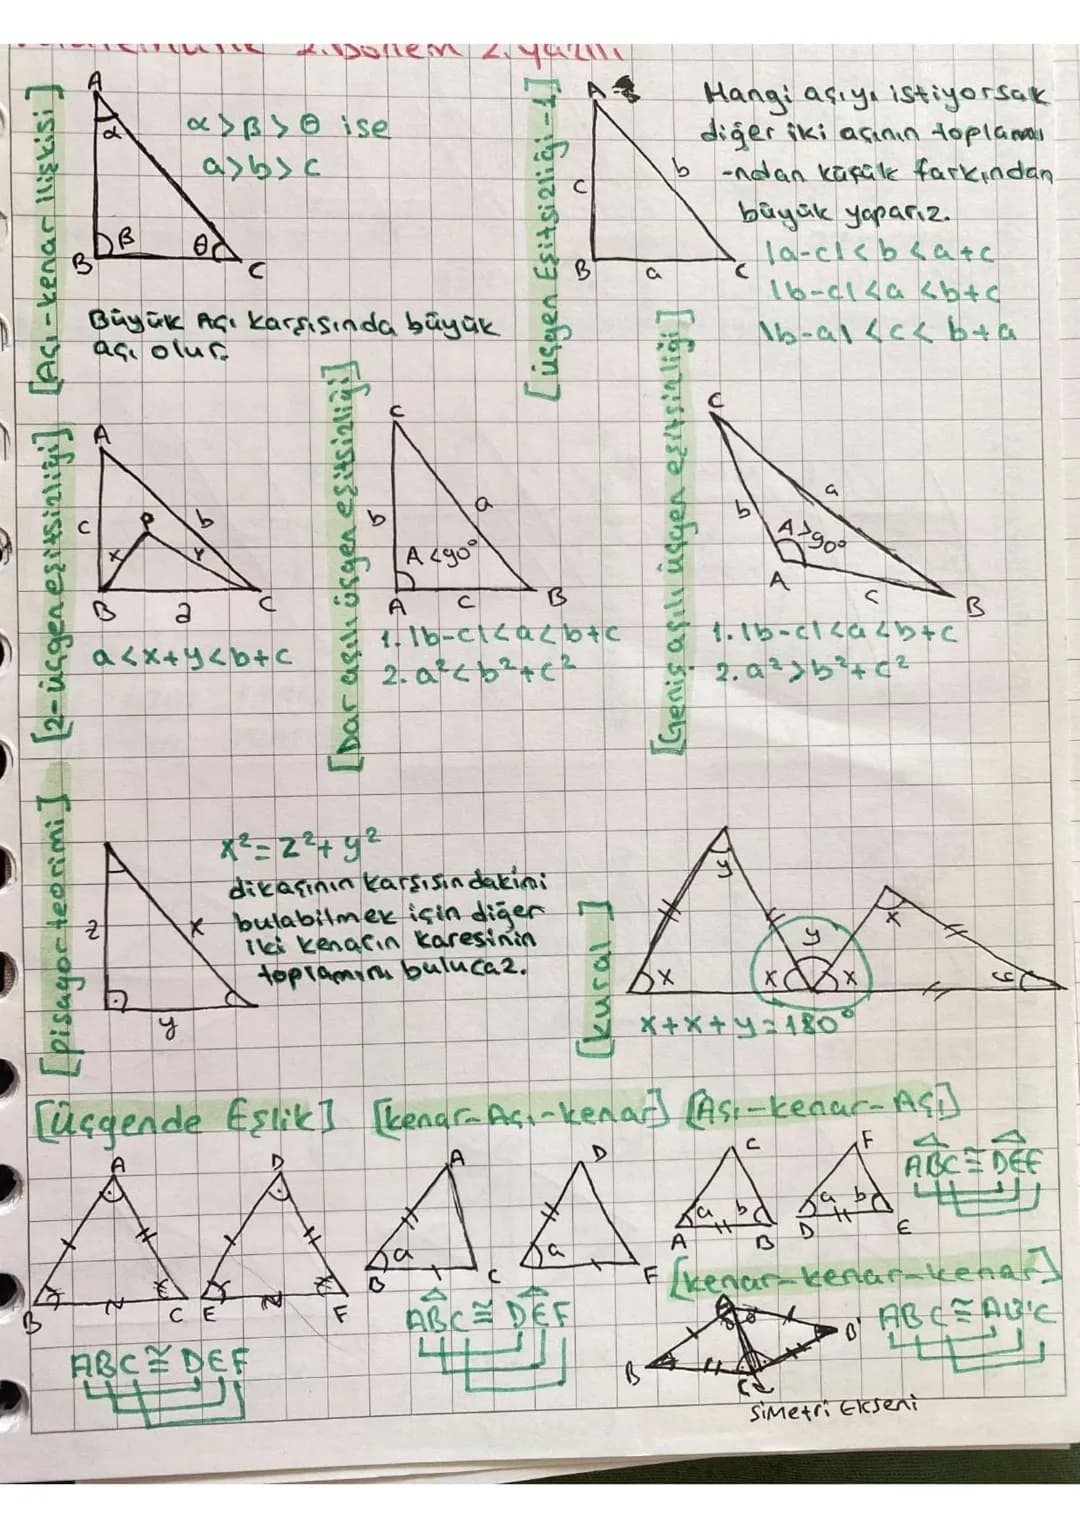 Matematik 2.Dönem 2.yazılı
[Açı-kenar İlişkisi]
A
α
β
θ
B
C
α>β>θ ise
a>b>c
Büyük Açı karşısında büyük
açı olur.
[üçgen Eşitsizliği-1]
A
c
b
B
a
C
Hangi açıyı istiyorsak
diğer iki açının toplamı
-ndan küçük farkından
büyük yaparız.
|a-c|<b<a+c
|b-c|<a<b+c
|b-a|<c<b+a
[2-üçgen eşitsizliği]
A
c
P
b
x
y
B
a
C
a<x+y<b+c
[Dar açılı üçgen eşitsizliği]
C
b
a
A<90°
A
c
B
1. |b-c|<a<b+c
2. a²<b²+c²
[Geniş açılı üçgen eşitsizliği]
C
a
b
A>90°
A
c
B
1. |b-c|<a<b+c
2. a²>b²+c²
[pisagor teorimi]
z
x
y
x²=z²+y²
dikaçının karşısındakini
bulabilmek için diğer
iki kenarın karesinin
toplamını bulucaz.
[kural]
y
x
x
y
x
x
x+x+y=180°
[üçgende Eşlik] [kenar-Açı-kenar] [Açı-kenar-Açı]
A
D
B
C
E
F
ABC≅DEF
A
D
a
a
B
C
F
ABC≅DEF
C
F
a
b
a
b
A
B
D
E
ABC≅DEF
[kenar-kenar-kenar]
B
B'
ABC≅AB'C
Simetri Ekseni